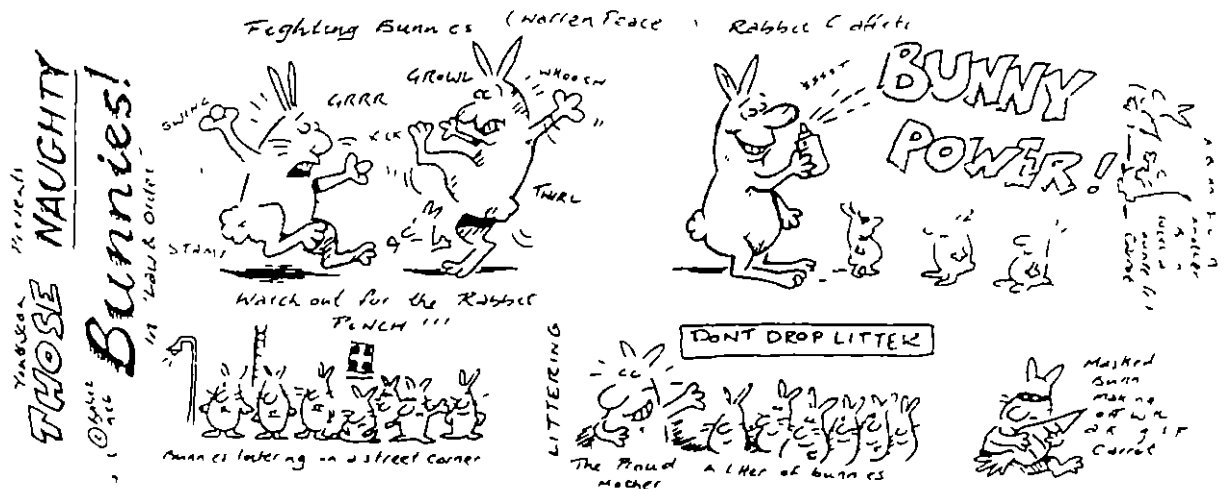 Presents
THOSE NAUGHTY
Bunnies!
in 'Law & Order'
Fighting Bunnies (Warren Peace
SWING
GRRR
GROWL
WHOOSH
TWIRL
STAMP
Watch out for the Rabbit
PUNCH !!!
Rabbit
BUNNY
POWER!
another
Carrot
Bunnies loitering on a street corner
LITTERING
DONT DROP LITTER
The Proud
Mother
A litter of bunnies
Masked
Bunny
Making
off with
a
Carrot